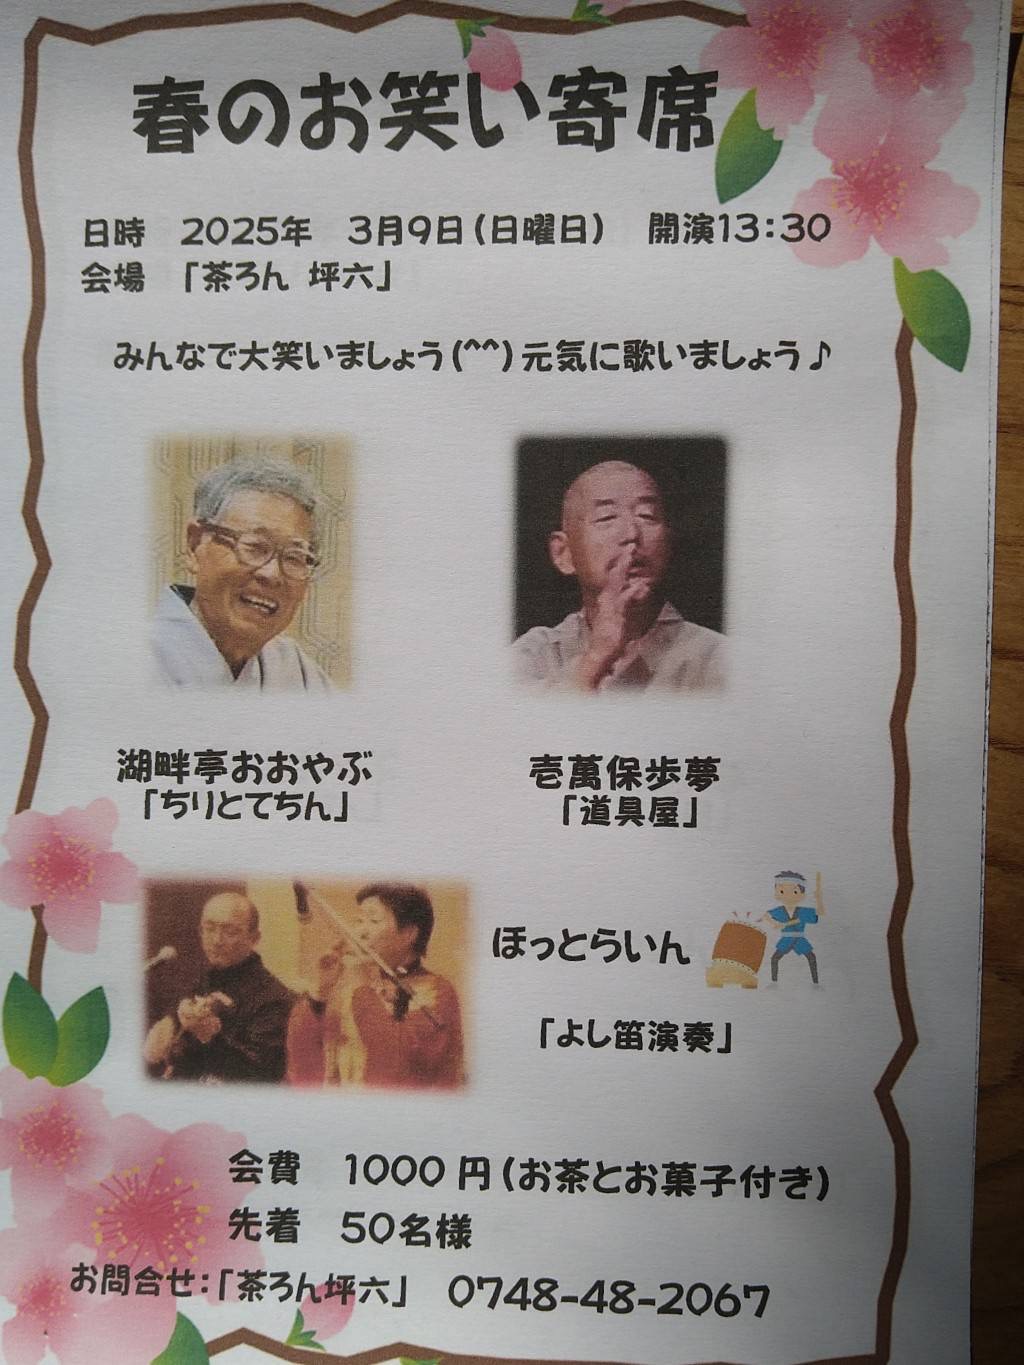 春のお笑い寄席
日時　2025年　3月9日(日曜日)　開演13:30
会場　「茶ろん 坪六」
みんなで大笑いましょう(^^)元気に歌いましょう♪
湖畔亭おおやぶ
「ちりとてちん」
壱萬保歩夢
「道具屋」
ほっとらいん
「よし笛演奏」
会費　1000円(お茶とお菓子付き)
先着　50名様
お問合せ:「茶ろん坪六」　0748-48-2067